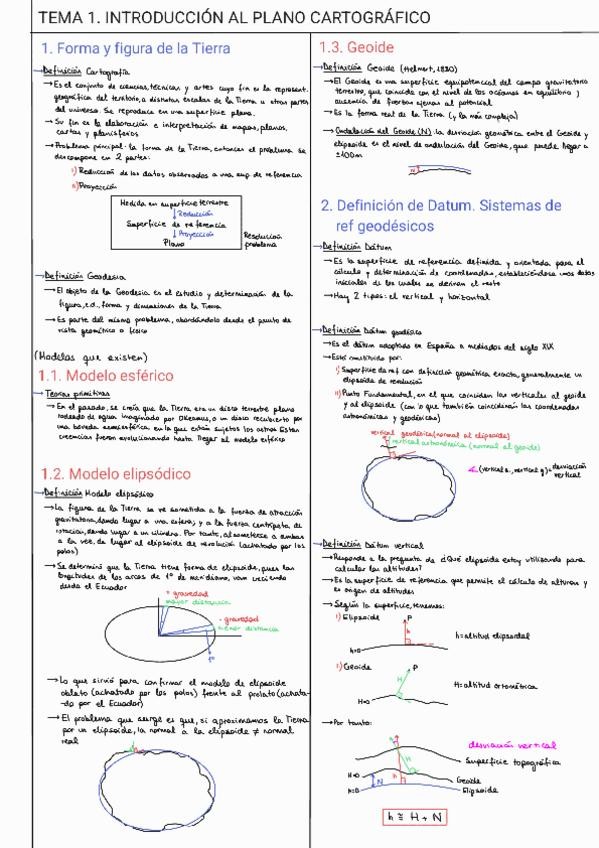 TEMA 1. INTRODUCCIÓN AL PLANO CARTOGRÁFICO
1. Forma y figura de la Tierra
→ Definición Cartografía
→ Es el conjunto de ciencias, técnicas y artes cuyo fin es la represent.
geográfica del territorio, a distintas escalas de la Tierra u otras partes
del universo. Se reproduce en una superficie plana.
→ Su fin es la elaboración e interpretación de mapas, planos,
cartas y planisferios
→ Problema principal: la forma de la Tierra, entonces el problema se
descompone en 2 partes:
I) Reducción de los datos observados a una sup. de referencia
II) Proyección
Medida en superficie terrestre
↓ Reducción
Superficie de referencia
↓ Proyección
Plano
Resolución
problema
→ Definición Geodesia
→ El objeto de la Geodesia es el estudio y determinación de la
figura, c.d., forma y dimensiones de la Tierra
→ Es parte del mismo problema, abordándolo desde el punto de
vista geométrico o físico
(Modelos que existen)
1.1. Modelo esférico
→ Teorías primitivas
→ En el pasado, se creía que la Tierra era un disco terrestre plano
rodeado de aguas imaginado por Okeanus, o un disco recubierto por
una bóveda semiesférica, en la que están sujetos los astros. Estas
creencias fueron evolucionando hasta llegar al modelo esférico
1.2. Modelo elipsódico
→ Definición Modelo elipsódico
→ La figura de la Tierra se ve sometida a la fuerza de atracción
gravitatoria, dando lugar a una esfera; y a la fuerza centrípeta de
rotación, dando lugar a un cilindro. Por tanto, al someterse a ambas
a la vez, da lugar al elipsoide de revolución (achatado por los
polos)
→ Se determinó que la Tierra tiene forma de elipsoide, pues las
longitudes de los arcos de 1º de meridiano, van creciendo
desde el Ecuador
+ gravedad
mayor distancia
- gravedad
menor distancia
1º
→ Lo que sirvió para confirmar el modelo de elipsoide
oblato (achatado por los polos) frente al prolato (achata-
-do por el Ecuador)
→ El problema que surge es que, si aproximamos la Tierra
por un elipsoide, la normal a la elipsoide ≠ normal
real
1.3. Geoide
→ Definición Geoide (Helmert, 1880)
→ El Geoide es una superficie equipotencial del campo gravitatorio
terrestre, que coincide con el nivel de los océanos en equilibrio y
ausencia de fuerzas ajenas al potencial
→ Es la forma real de la Tierra (y la más compleja)
→ Ondulación del Geoide (N): la desviación geométrica entre el Geoide y
elipsoide es el nivel de ondulación del Geoide, que puede llegar a
±100m
N
2. Definición de Datum. Sistemas de
ref geodésicos
→ Definición Dátum
→ Es la superficie de referencia definida y orientada para el
cálculo y determinación de coordenadas, estableciéndose unos datos
iniciales de los cuales se derivan el resto
→ Hay 2 tipos: el vertical y horizontal
→ Definición Dátum geodésico
→ Es el dátum adoptado en España a mediados del siglo XIX
→ Está constituido por:
I) Superficie de ref con definición geométrica exacta, generalmente un
elipsoide de revolución
II) Punto Fundamental, en el que coinciden las verticales al geoide
y al elipsoide (con lo que también coincidirán las coordenadas
astronómicas y geodésicas)
vertical geodésica (normal al elipsoide)
vertical astronómica (normal al geoide)
∡ (vertical a., vertical g) = desviación
vertical
→ Definición Dátum vertical
→ Responde a la pregunta de ¿Qué elipsoide estoy utilizando para
calcular las altitudes?
→ Es la superficie de referencia que permite el cálculo de alturas y
es origen de altitudes
→ Según la superficie, tenemos:
I) Elipsoide
P
h
h=0
h= altitud elipsoidal
II) Geoide
P
H
H=0
H= altitud ortométrica
→ Por tanto:
desviación vertical
Superficie topográfica
H
h
H=0
Geoide
N
h=0
Elipsoide
h ≅ H + N